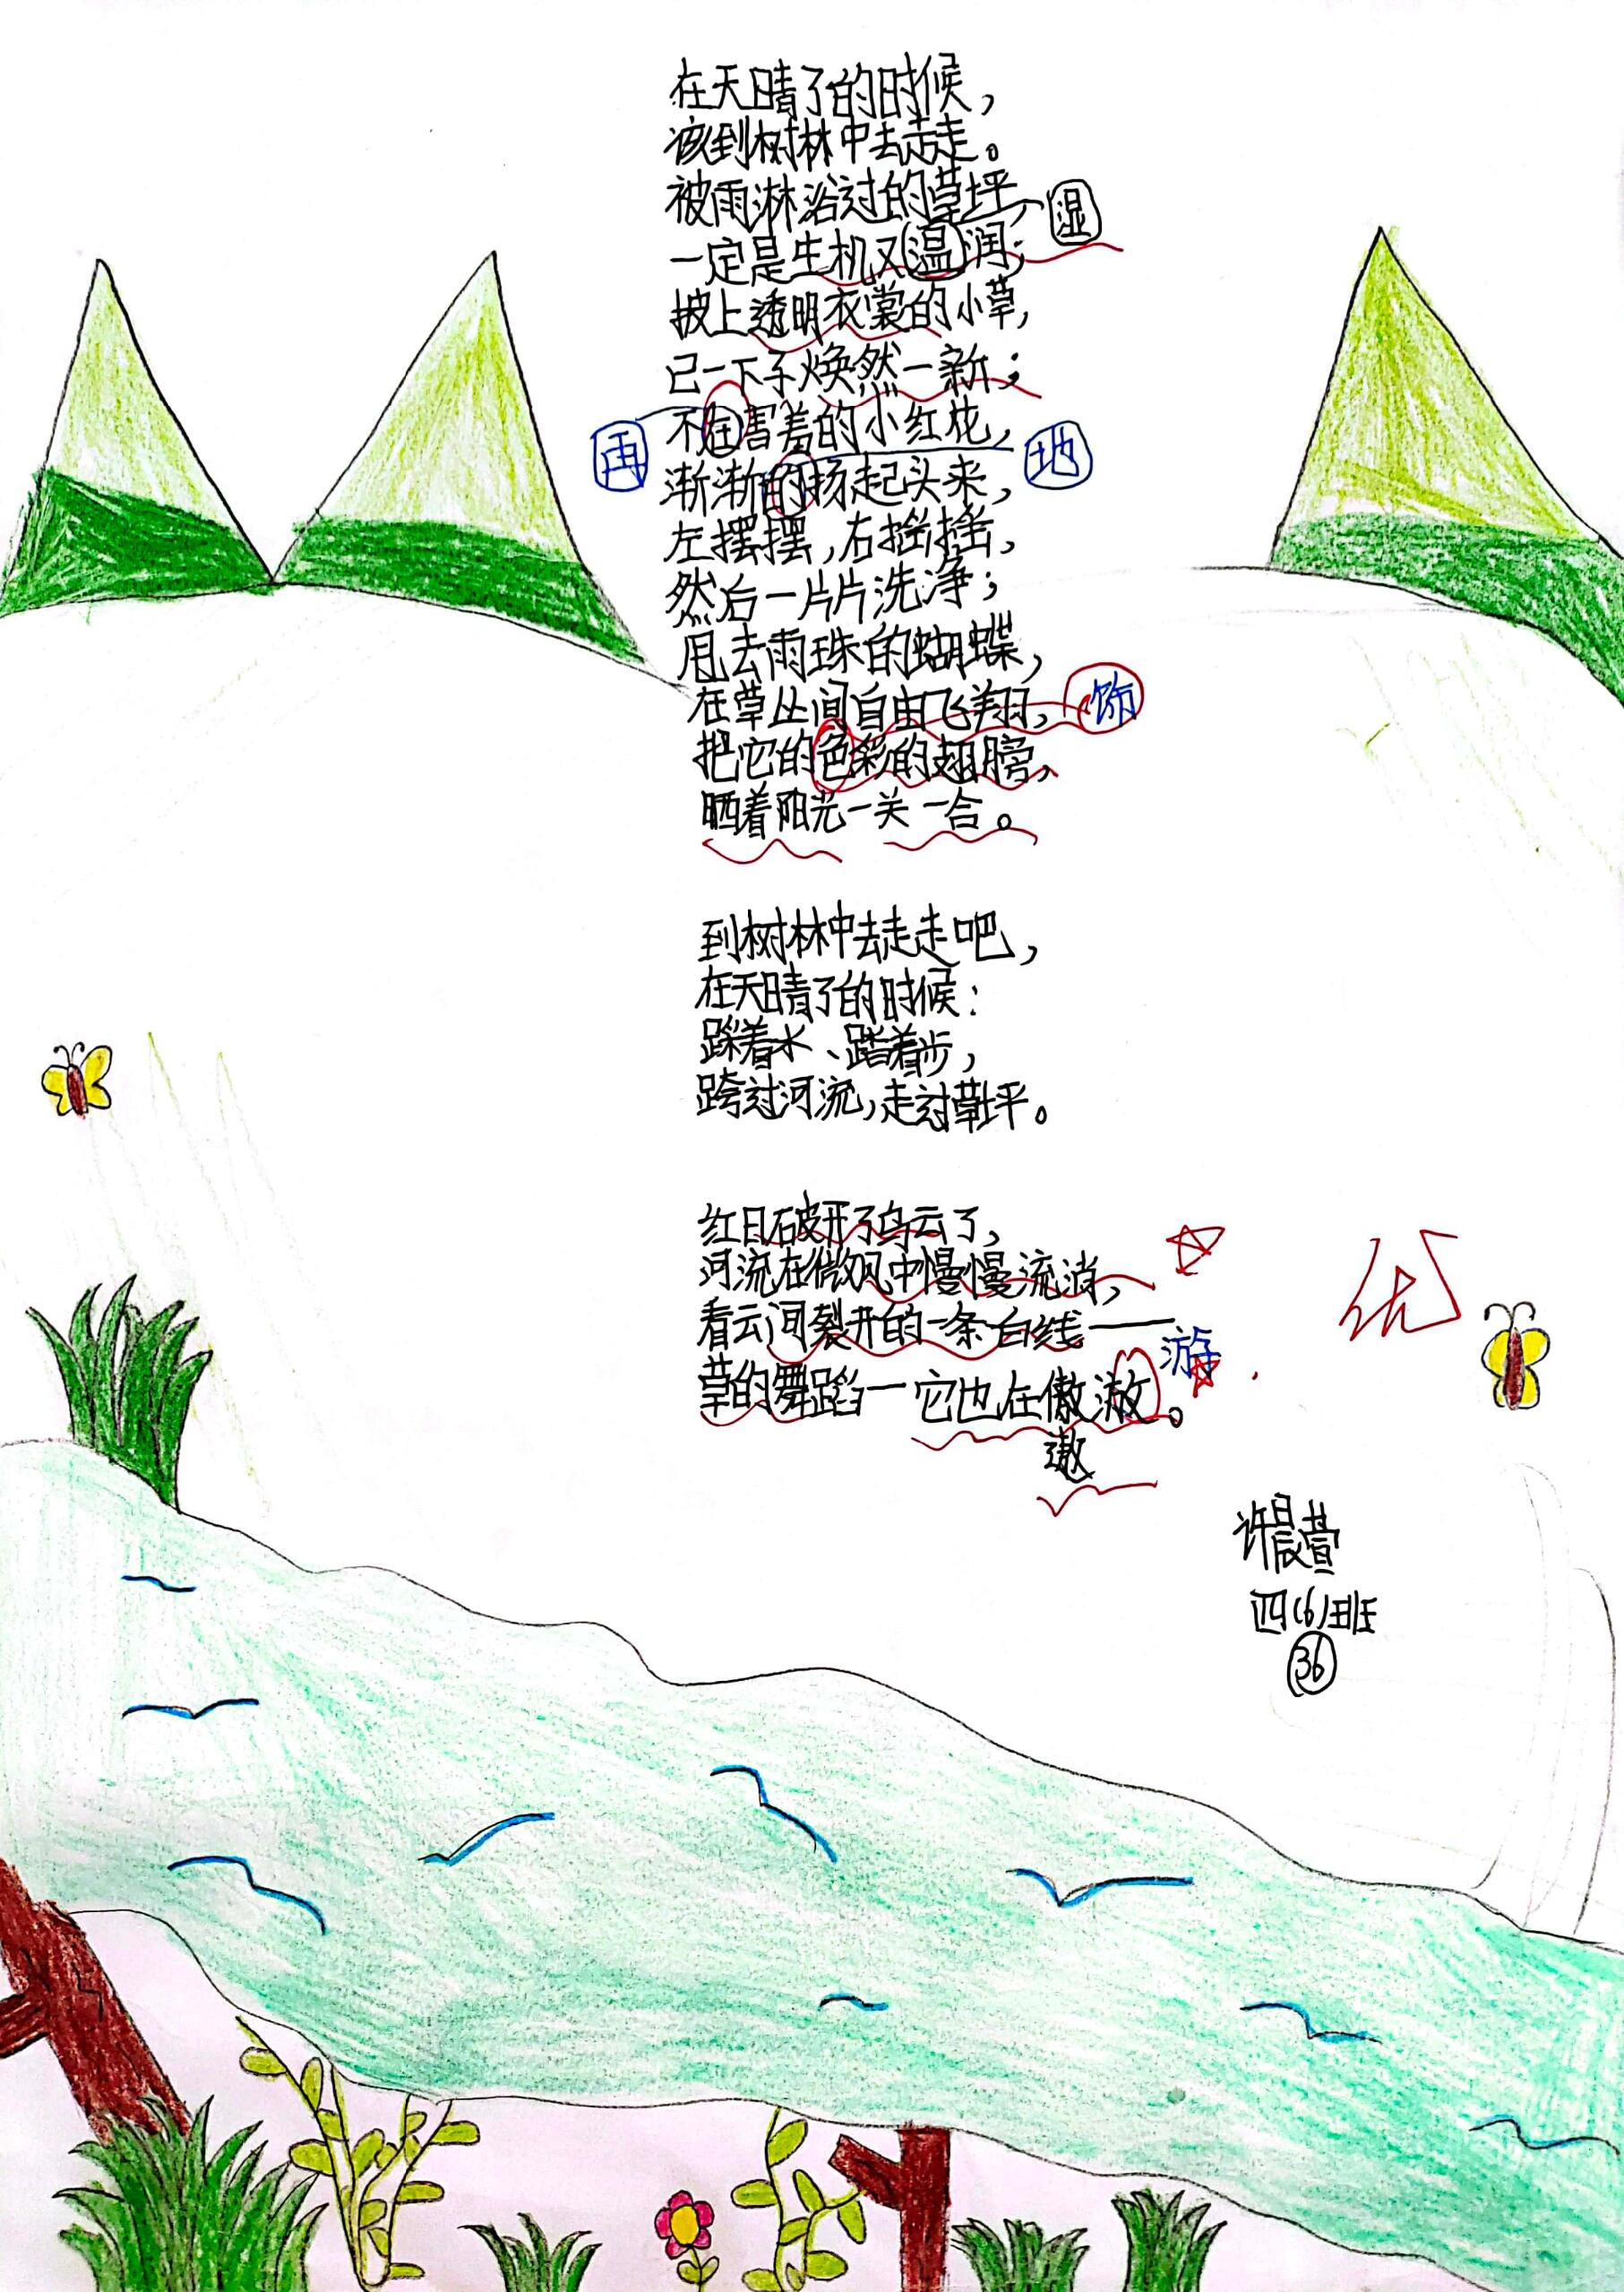 在天晴了的时候，
该到树林中去走走。
被雨淋浴过的草坪，
湿
一定是生机又温润；
披上透明衣裳的小草，
已一下子焕然一新；
不在害羞的小红花，
再
地
渐渐的扬起头来，
左摆摆，右摇摇，
然后一片片洗净；
甩去雨珠的蝴蝶，
在草丛间自由飞翔，
饰
把它的色彩的翅膀，
晒着阳光一关一合。
到树林中去走走吧，
在天晴了的时候：
踩着水、踏着步，
跨过河流，走过草坪。
红日破开了乌云了，
河流在微风中慢慢流淌，
看云河裂开的一条白线——
游
草的舞蹈一它也在傲
遨
优
许晨萱
四（6）班
36